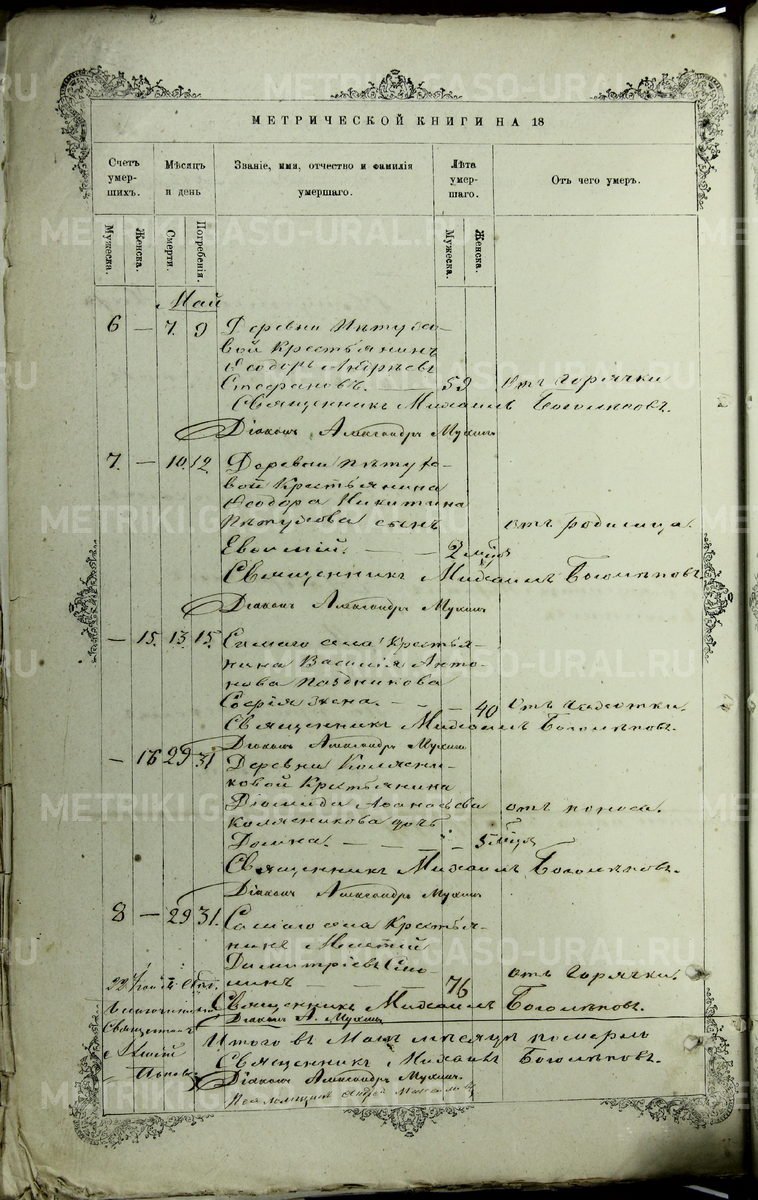 МЕТРИЧЕСКОЙ КНИГИ НА 18
Счетъ умер- шихъ.
Мѣсяцъ и день
Званіе, имя, отчество и фамилія умершаго.
Лѣта умер- шаго.
Отъ чего умеръ.
Мужеска. Женска. Смерти. Погребенія. Мужеска. Женска.
Май
6 — 7. 9 Деревни Пѣтухо-
вой Крестьянинъ
Ѳеодоръ Андреевъ
Стефановъ. — 59 Отъ горячки
Священникъ Михаилъ Боголѣповъ.
Діаконъ Александръ Мухинъ
7. — 10. 12. Деревни Пѣтухо-
вой Крестьянина
Ѳеодора Никитина
Пѣтухова сынъ отъ родимца.
Евѳимій. — — 2 мѣс
Священникъ Михаилъ Боголѣповъ.
Діаконъ Александръ Мухинъ
— 15. 13. 15. Самаго села Крестья-
нина Василія Анто-
нова Поздникова
Софія жена. — — 40 Отъ чахотки.
Священникъ Михаилъ Боголѣповъ.
Діаконъ Александръ Мухинъ
— 16 29 31 Деревни Колясни-
ковой Крестьянина
Діомида Аѳанасьева отъ поноса.
Колясникова дочь
Домна. — — 5 мѣс
Священникъ Михаилъ Боголѣповъ.
Діаконъ Александръ Мухинъ
8 — 29 31. Самаго села Крестья-
нинъ Мелетій
Димитріевъ
76 отъ горячки.
Священникъ Михаилъ Боголѣповъ.
Діаконъ А. Мухинъ
22
Священникъ
Поповъ
Итого въ Маѣ мѣсяцѣ померло
Священникъ Михаилъ Боголѣповъ.
Діаконъ Александръ Мухинъ.
Псаломщикъ Андрей
METRIKI.GASO-URAL.RU